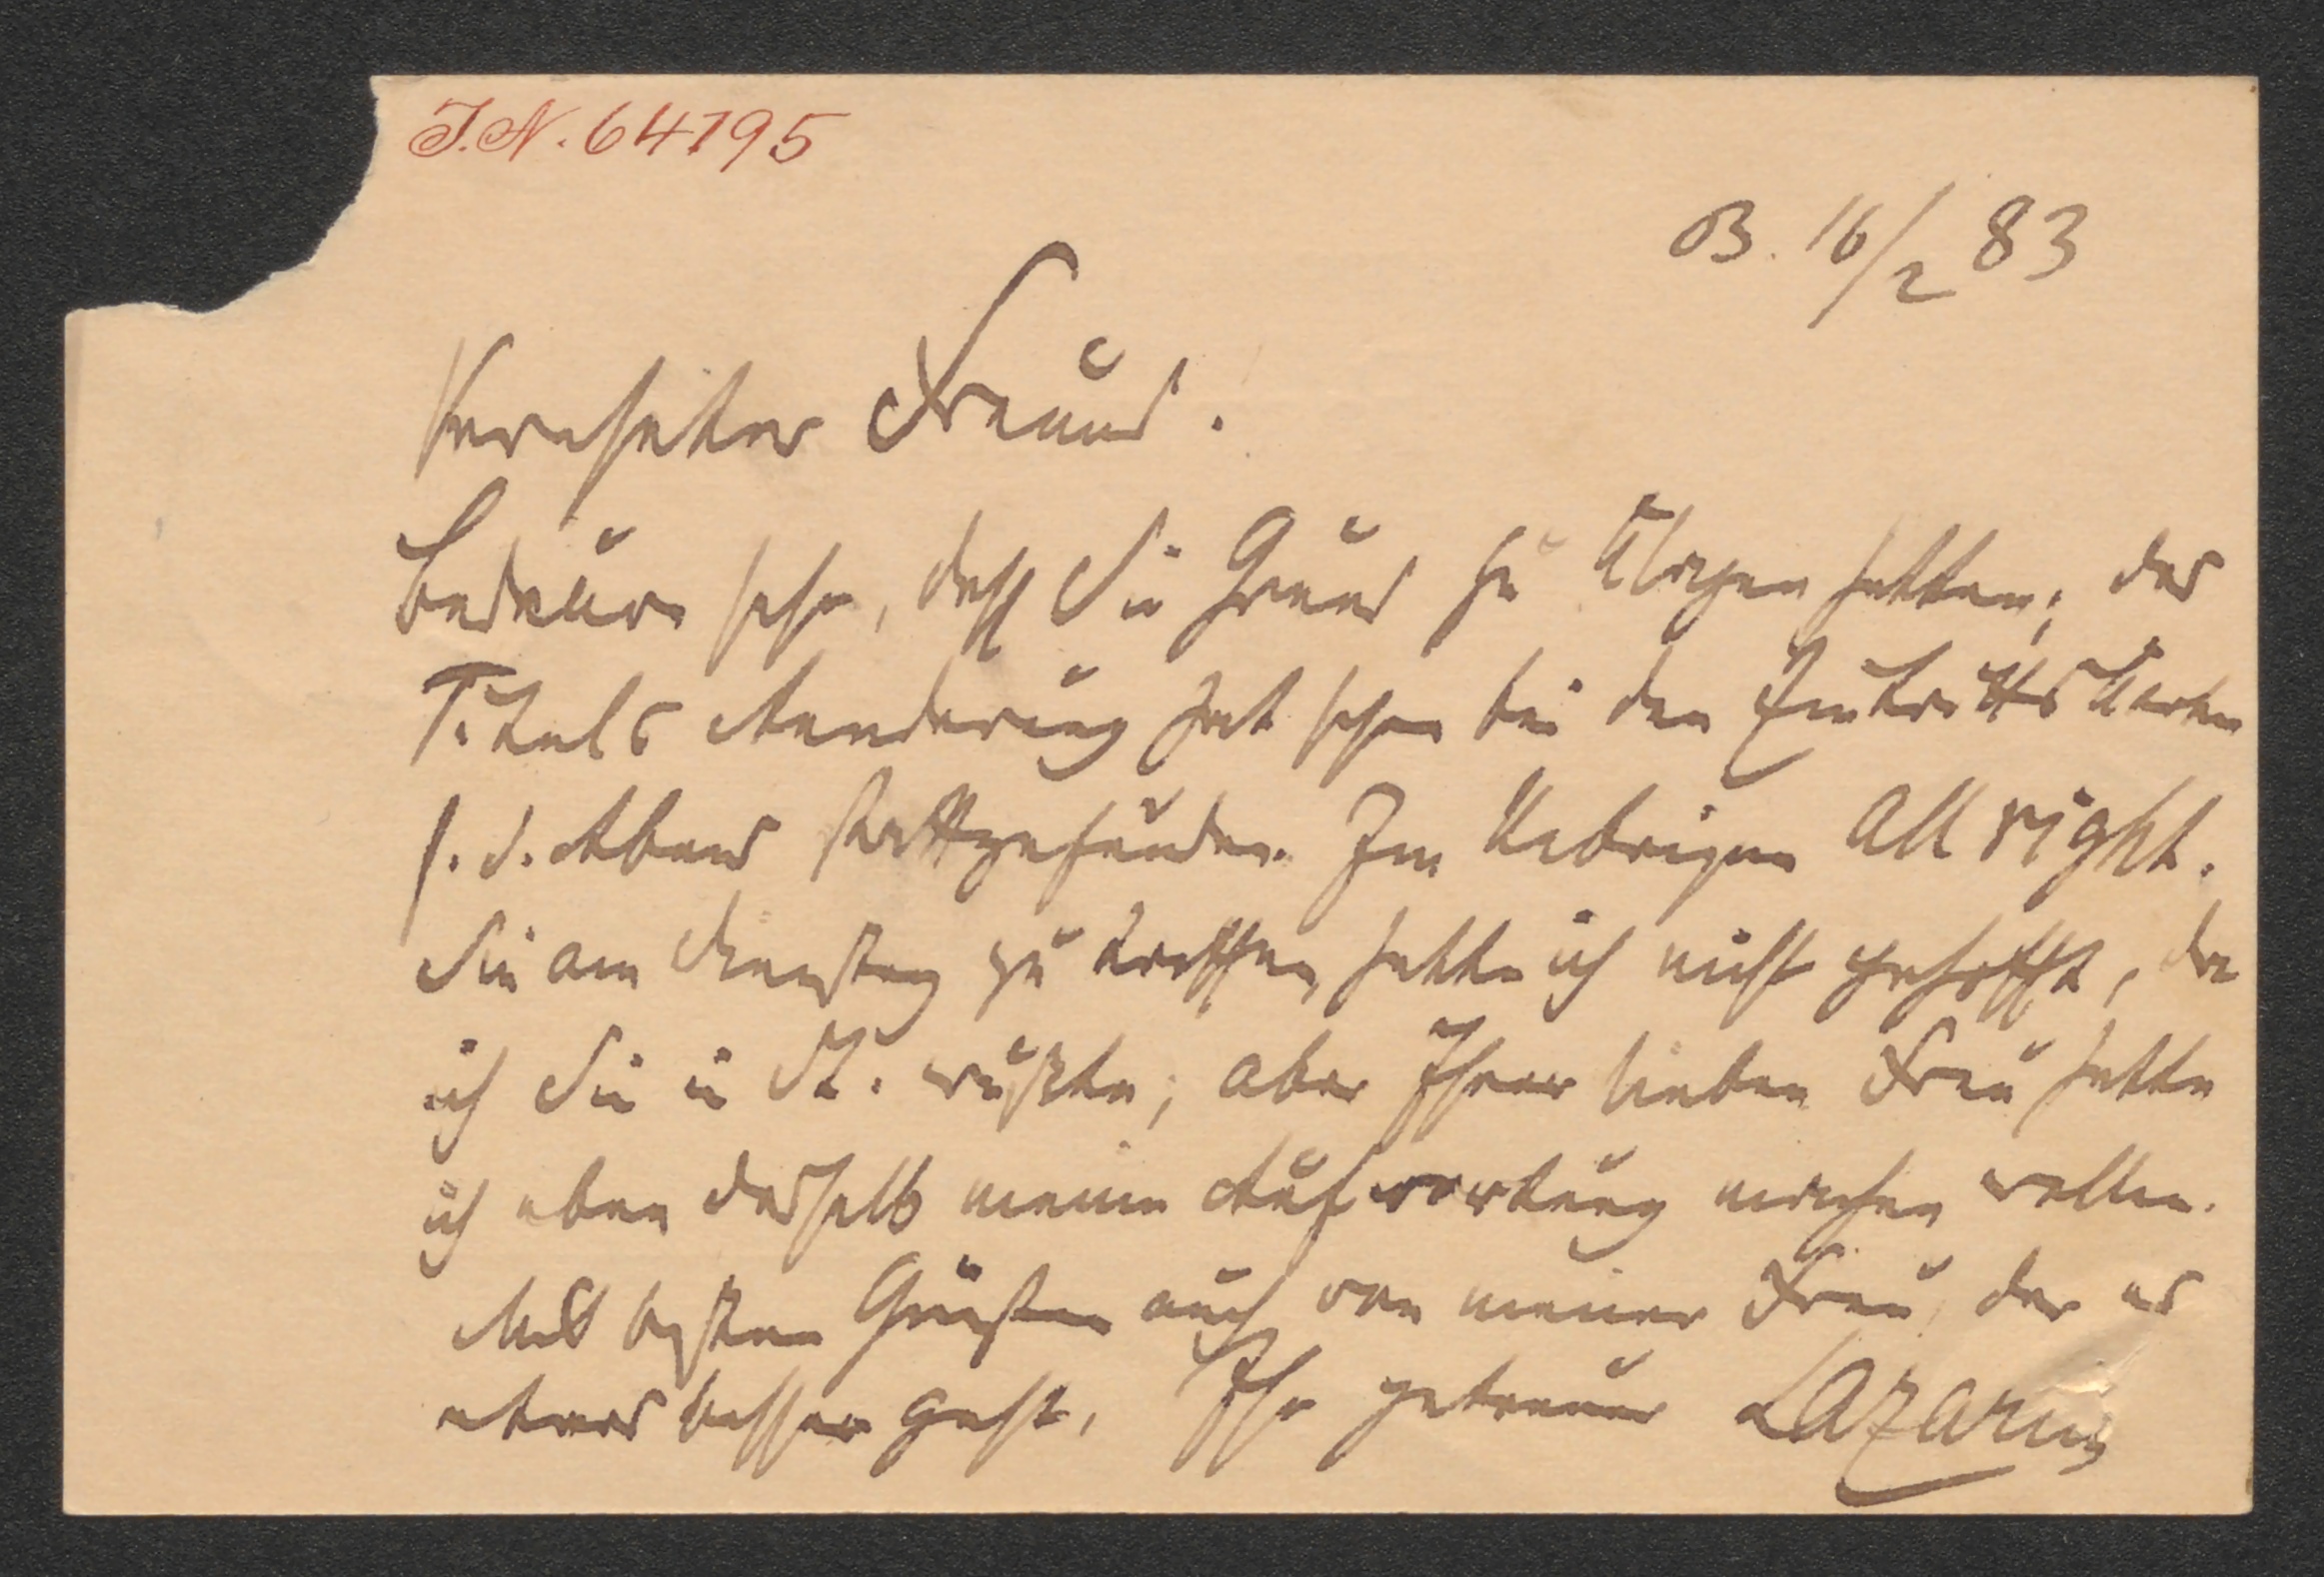 J.N. 64795
B. 16/2 83
Verehrter Freund.
Bedaure sehr, daß Sie Grund zu klagen hatten; des
Titels Aenderung hat schon bei den Eintrittskarten
f. d. Abend stattgefunden. Im Uebrigen All right.
Sie am Dienstag zu treffen hatte ich nicht gehofft, da
ich Sie in St. wußte; aber Ihrer lieben Frau hatte
ich eben deshalb meine Aufwartung machen wollen.
Mit besten Grüßen auch von meiner Frau, der es
etwas besser geht, Ihr getreuer Lazarus